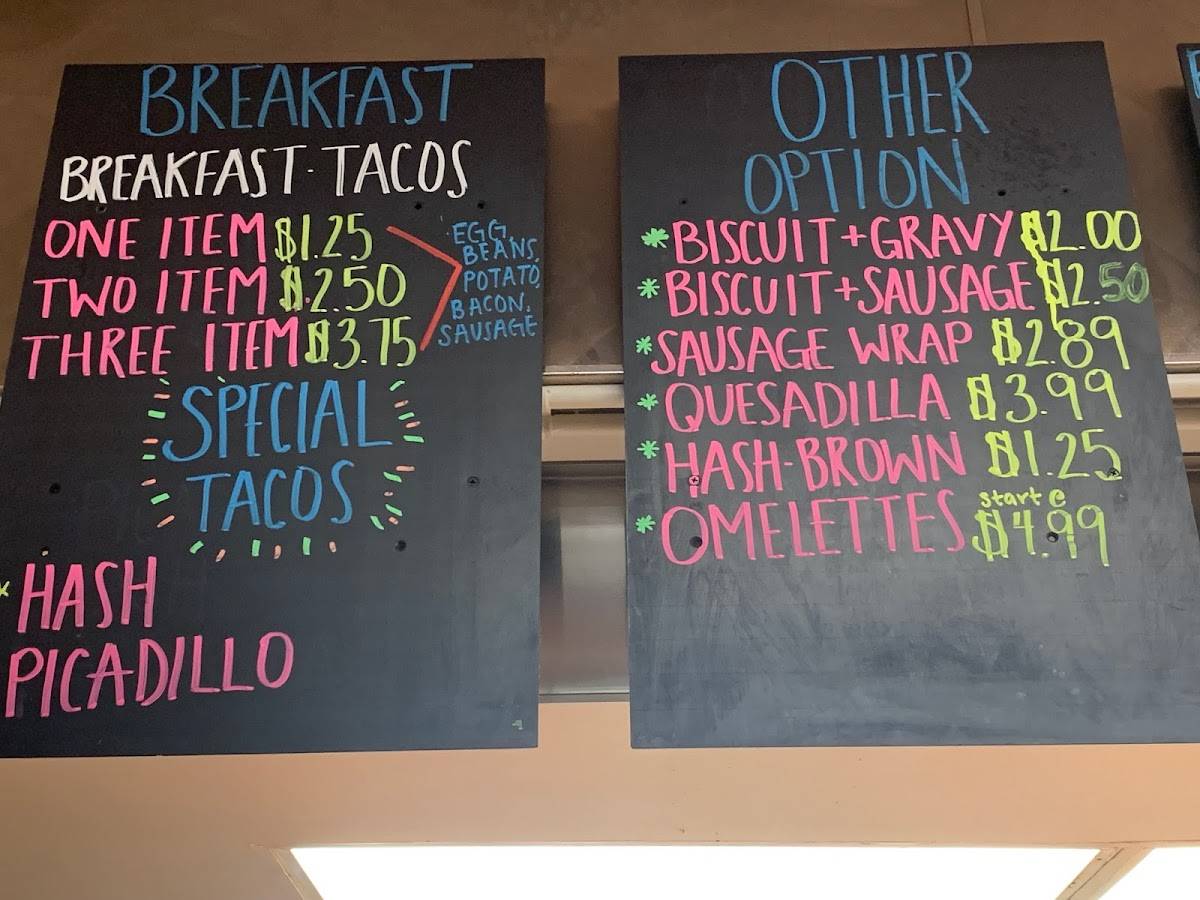 BREAKFAST
BREAKFAST-TACOS
ONE ITEM $1.25
TWO ITEM $2.50
THREE ITEM $3.75
EGG,
BEANS,
POTATO,
BACON,
SAUSAGE
SPECIAL
TACOS
* HASH
PICADILLO
OTHER
OPTION
* BISCUIT+GRAVY $2.00
* BISCUIT+SAUSAGE $2.50
* SAUSAGE WRAP $2.89
* QUESADILLA $3.99
* HASH-BROWN $1.25
* OMELETTES start @ $4.99